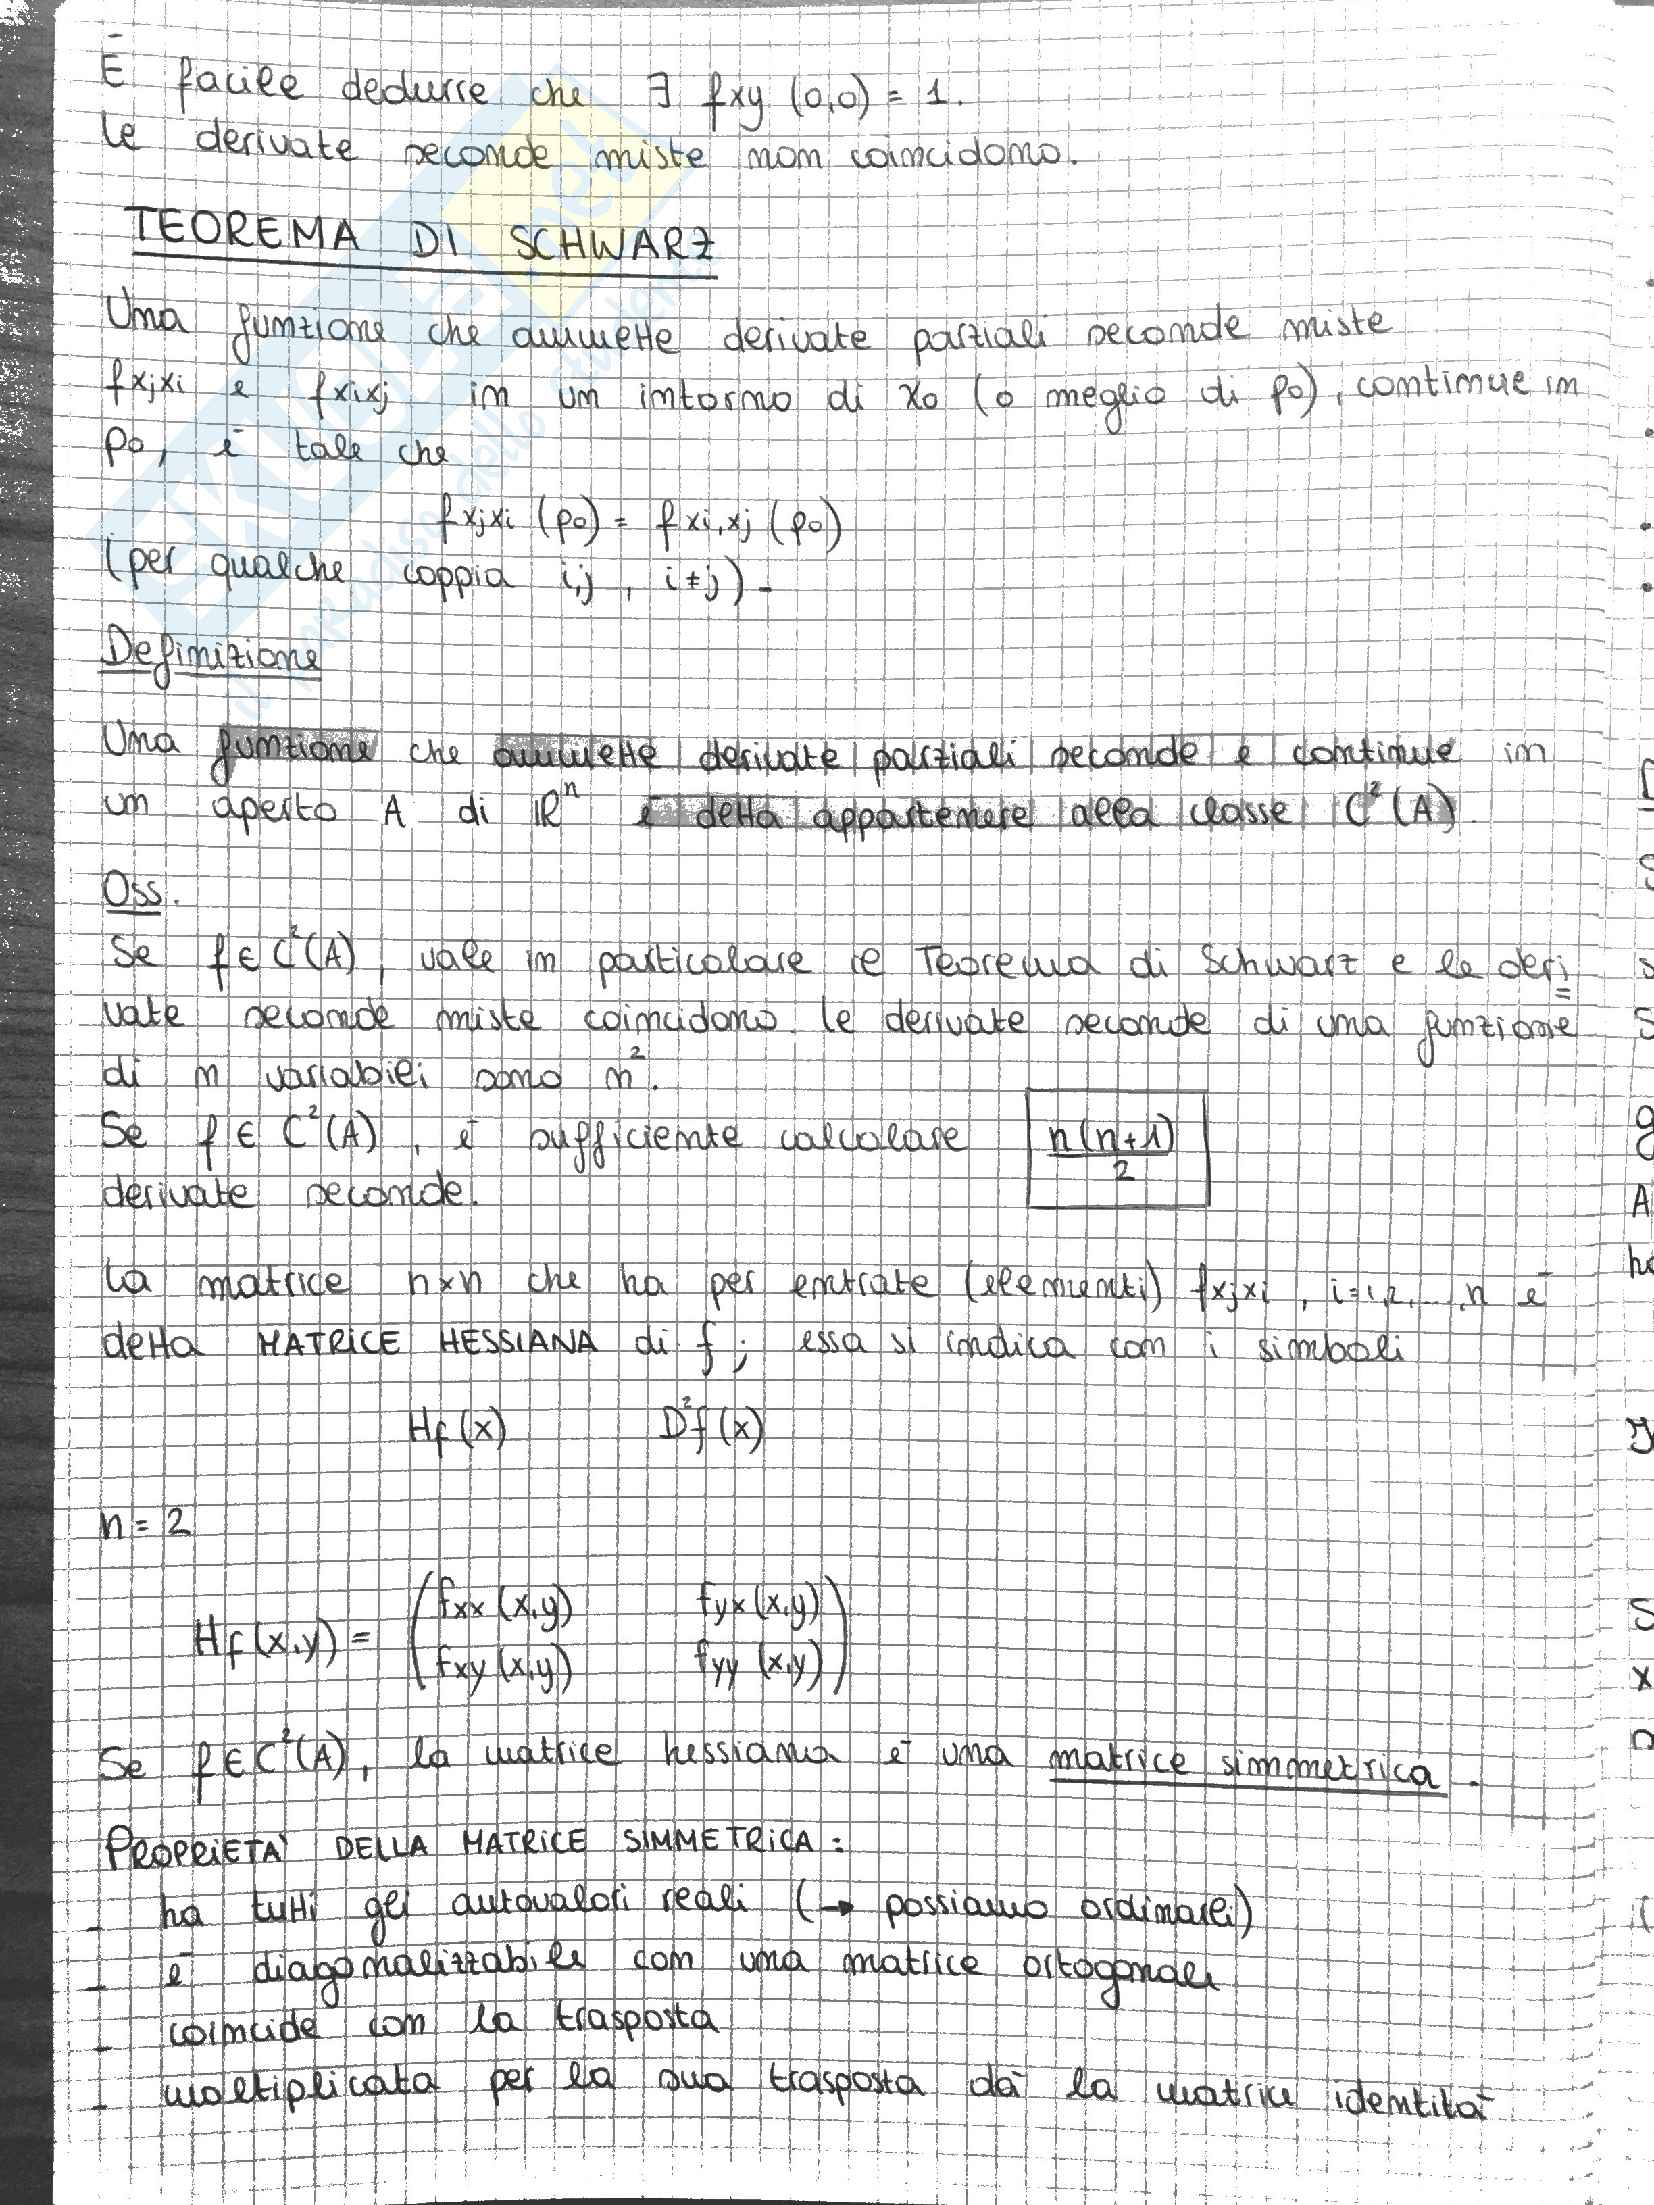 È facile dedurre che ∃ fxy (0,0) = 1.
Le derivate seconde miste non coincidono.
TEOREMA DI SCHWARZ
Una funzione che ammette derivate parziali seconde miste
fxjxi e fxixj in un intorno di x0 (o meglio di p0), continue in
p0, è tale che
fxjxi (p0) = fxi,xj (p0)
(per qualche coppia i,j , i≠j).
Definizione
Una funzione che ammette derivate parziali seconde e continue in
un aperto A di ℝⁿ è detta appartenere alla classe C²(A).
Oss.
Se f∈C²(A), vale in particolare il Teorema di Schwarz e le deri=
vate seconde miste coincidono. Le derivate seconde di una funzione
di n variabili sono n².
Se f ∈ C²(A), è sufficiente calcolare n(n+1)/2
derivate seconde.
La matrice n×n che ha per entrate (elementi) fxjxi , i=1,2,...,n è
detta MATRICE HESSIANA di f ; essa si indica con i simboli
Hf (x) D²f (x)
n = 2
Hf (x,y) = ( fxx (x,y) fyx (x,y)
fxy (x,y) fyy (x,y) )
Se f∈C²(A), la matrice hessiana è una matrice simmetrica.
PROPRIETÀ DELLA MATRICE SIMMETRICA :
- ha tutti gli autovalori reali (→ possiamo ordinarli)
- è diagonalizzabile con una matrice ortogonale
- coincide con la trasposta
- moltiplicata per la sua trasposta dà la matrice identità